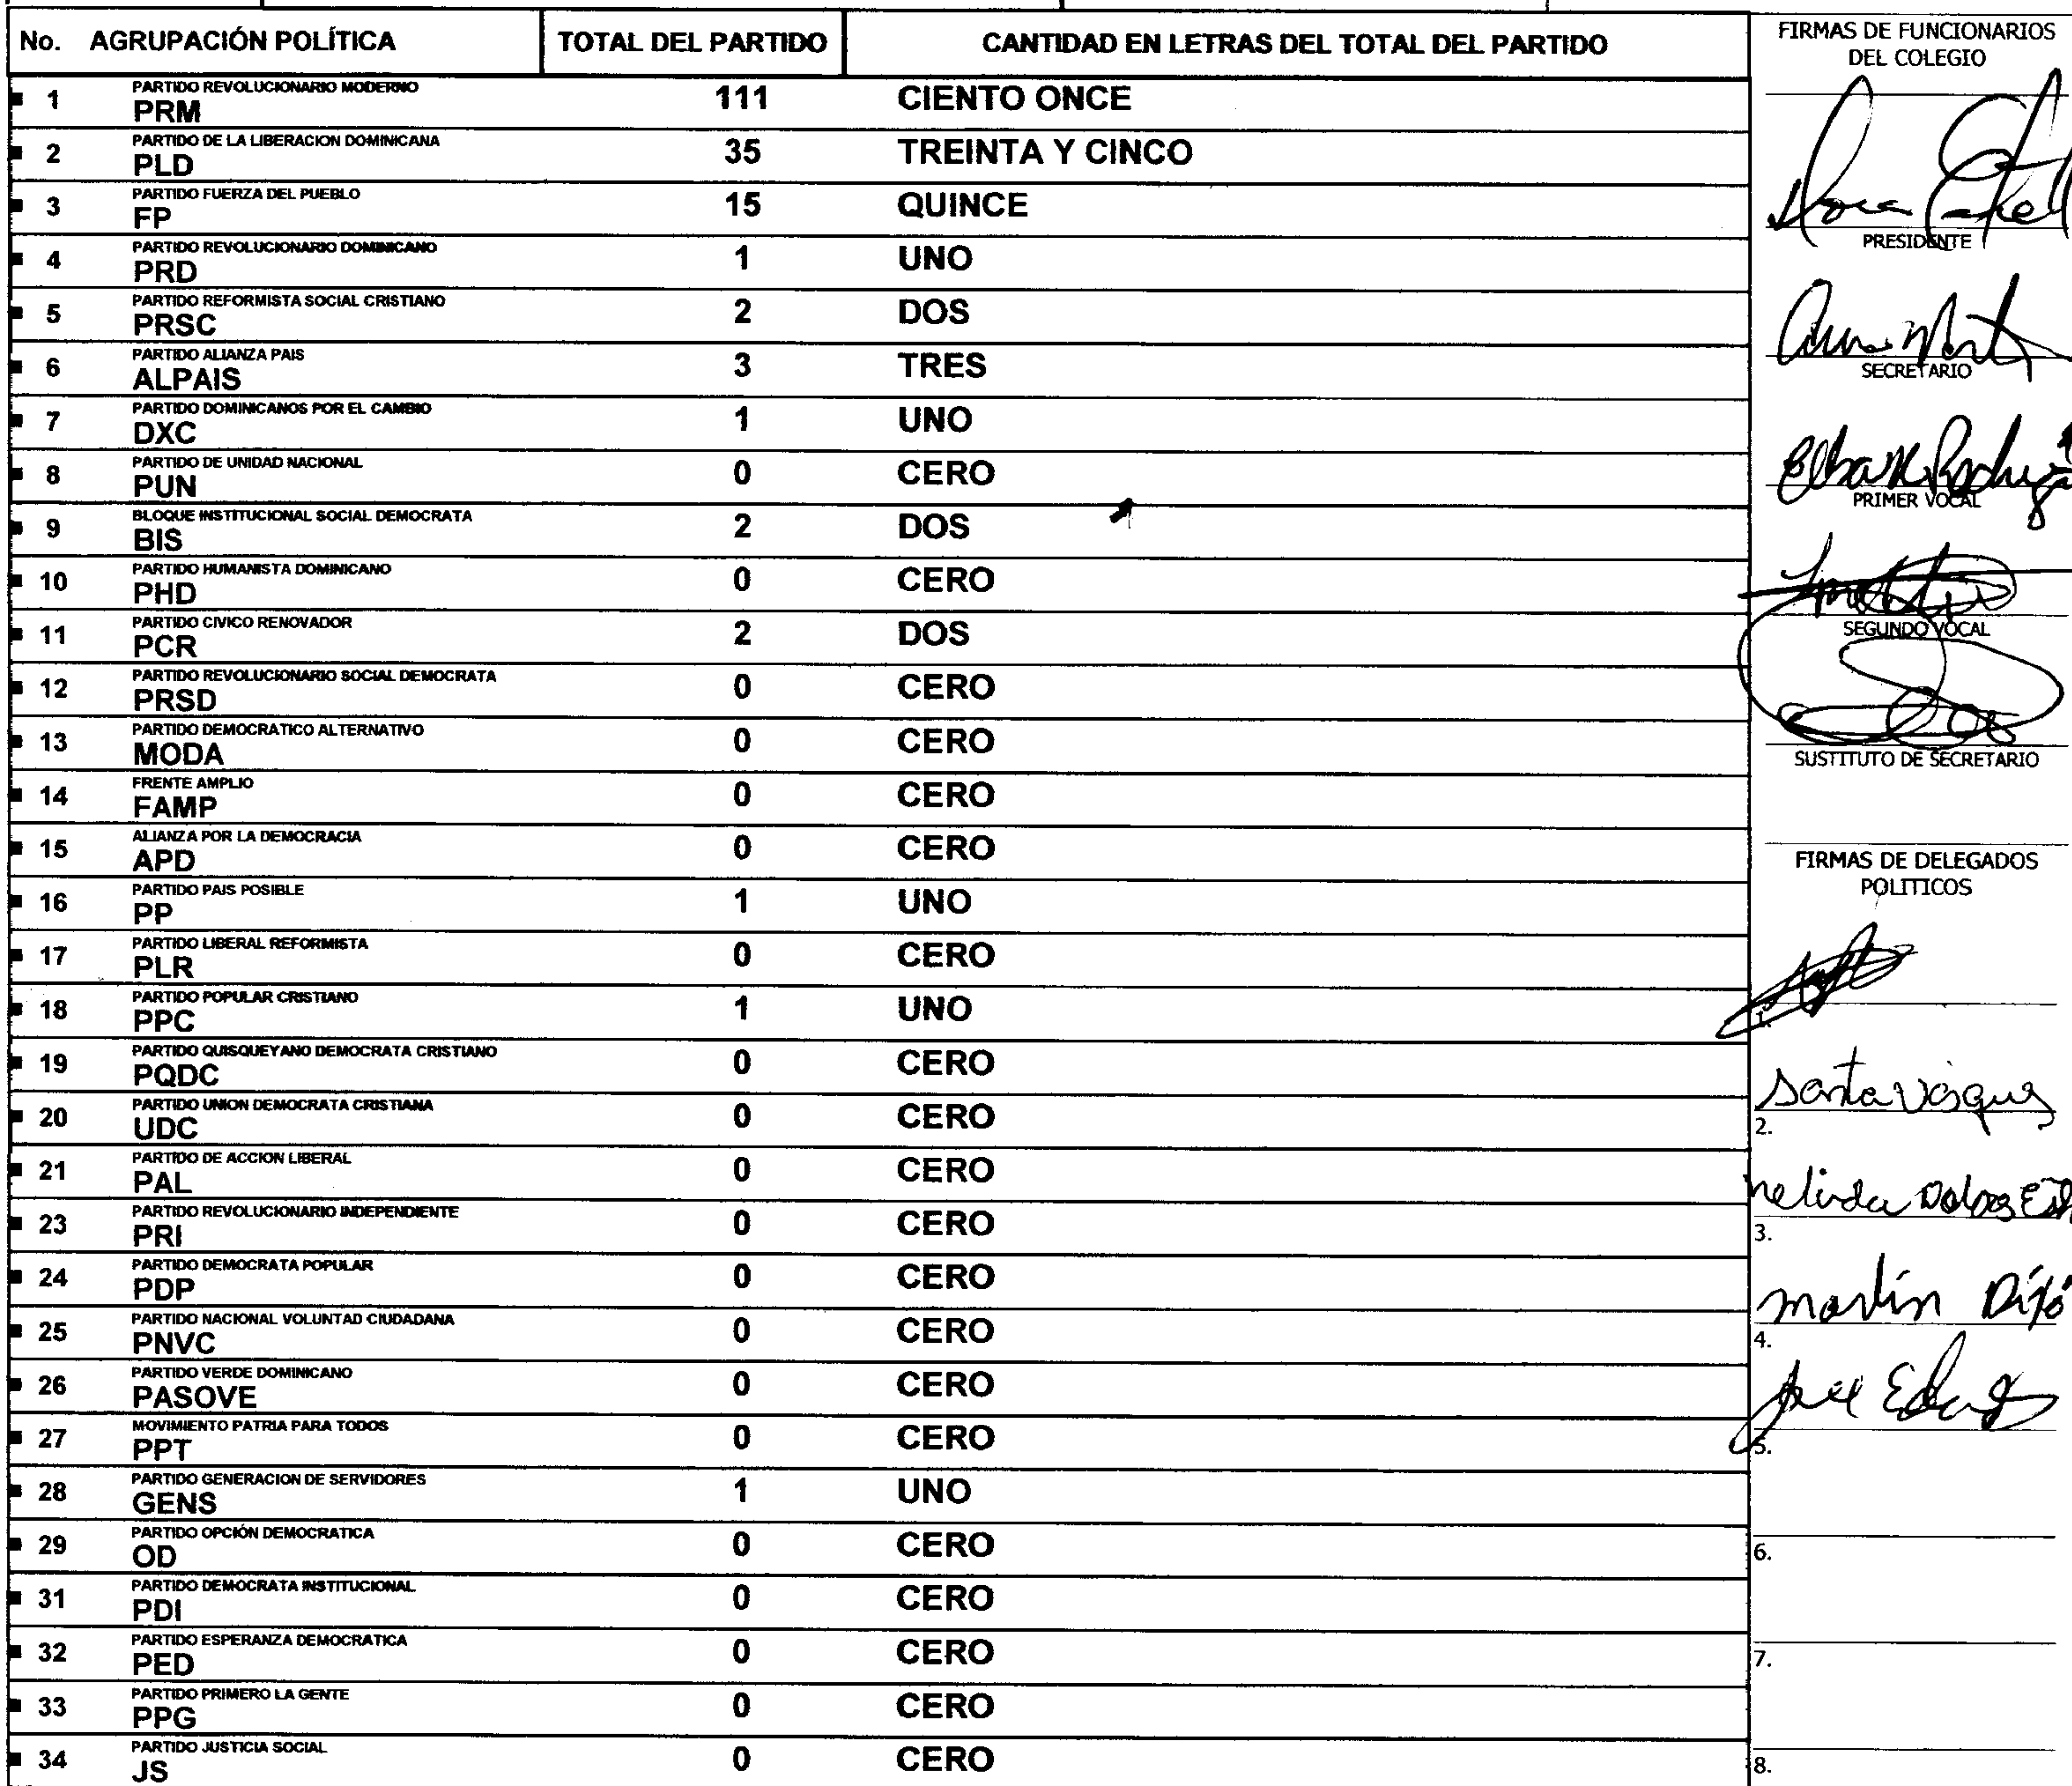 No. AGRUPACIÓN POLÍTICA TOTAL DEL PARTIDO CANTIDAD EN LETRAS DEL TOTAL DEL PARTIDO
PARTIDO REVOLUCIONARIO MODERNO
1 PRM 111 CIENTO ONCE
PARTIDO DE LA LIBERACION DOMINICANA
2 PLD 35 TREINTA Y CINCO
PARTIDO FUERZA DEL PUEBLO
3 FP 15 QUINCE
PARTIDO REVOLUCIONARIO DOMINICANO
4 PRD 1 UNO
PARTIDO REFORMISTA SOCIAL CRISTIANO
5 PRSC 2 DOS
PARTIDO ALIANZA PAIS
6 ALPAIS 3 TRES
PARTIDO DOMINICANOS POR EL CAMBIO
7 DXC 1 UNO
PARTIDO DE UNIDAD NACIONAL
8 PUN 0 CERO
BLOQUE INSTITUCIONAL SOCIAL DEMOCRATA
9 BIS 2 DOS
PARTIDO HUMANISTA DOMINICANO
10 PHD 0 CERO
PARTIDO CIVICO RENOVADOR
11 PCR 2 DOS
PARTIDO REVOLUCIONARIO SOCIAL DEMOCRATA
12 PRSD 0 CERO
PARTIDO DEMOCRATICO ALTERNATIVO
13 MODA 0 CERO
FRENTE AMPLIO
14 FAMP 0 CERO
ALIANZA POR LA DEMOCRACIA
15 APD 0 CERO
PARTIDO PAIS POSIBLE
16 PP 1 UNO
PARTIDO LIBERAL REFORMISTA
17 PLR 0 CERO
PARTIDO POPULAR CRISTIANO
18 PPC 1 UNO
PARTIDO QUISQUEYANO DEMOCRATA CRISTIANO
19 PQDC 0 CERO
PARTIDO UNION DEMOCRATA CRISTIANA
20 UDC 0 CERO
PARTIDO DE ACCION LIBERAL
21 PAL 0 CERO
PARTIDO REVOLUCIONARIO INDEPENDIENTE
23 PRI 0 CERO
PARTIDO DEMOCRATA POPULAR
24 PDP 0 CERO
PARTIDO NACIONAL VOLUNTAD CIUDADANA
25 PNVC 0 CERO
PARTIDO VERDE DOMINICANO
26 PASOVE 0 CERO
MOVIMIENTO PATRIA PARA TODOS
27 PPT 0 CERO
PARTIDO GENERACION DE SERVIDORES
28 GENS 1 UNO
PARTIDO OPCIÓN DEMOCRATICA
29 OD 0 CERO
PARTIDO DEMOCRATA INSTITUCIONAL
31 PDI 0 CERO
PARTIDO ESPERANZA DEMOCRATICA
32 PED 0 CERO
PARTIDO PRIMERO LA GENTE
33 PPG 0 CERO
PARTIDO JUSTICIA SOCIAL
34 JS 0 CERO
FIRMAS DE FUNCIONARIOS
DEL COLEGIO
PRESIDENTE
SECRETARIO
PRIMER VOCAL
SEGUNDO VOCAL
SUSTITUTO DE SECRETARIO
FIRMAS DE DELEGADOS
POLITICOS
1.
Santa Vasques
2.
3.
martin
4.
5.
6.
7.
8.